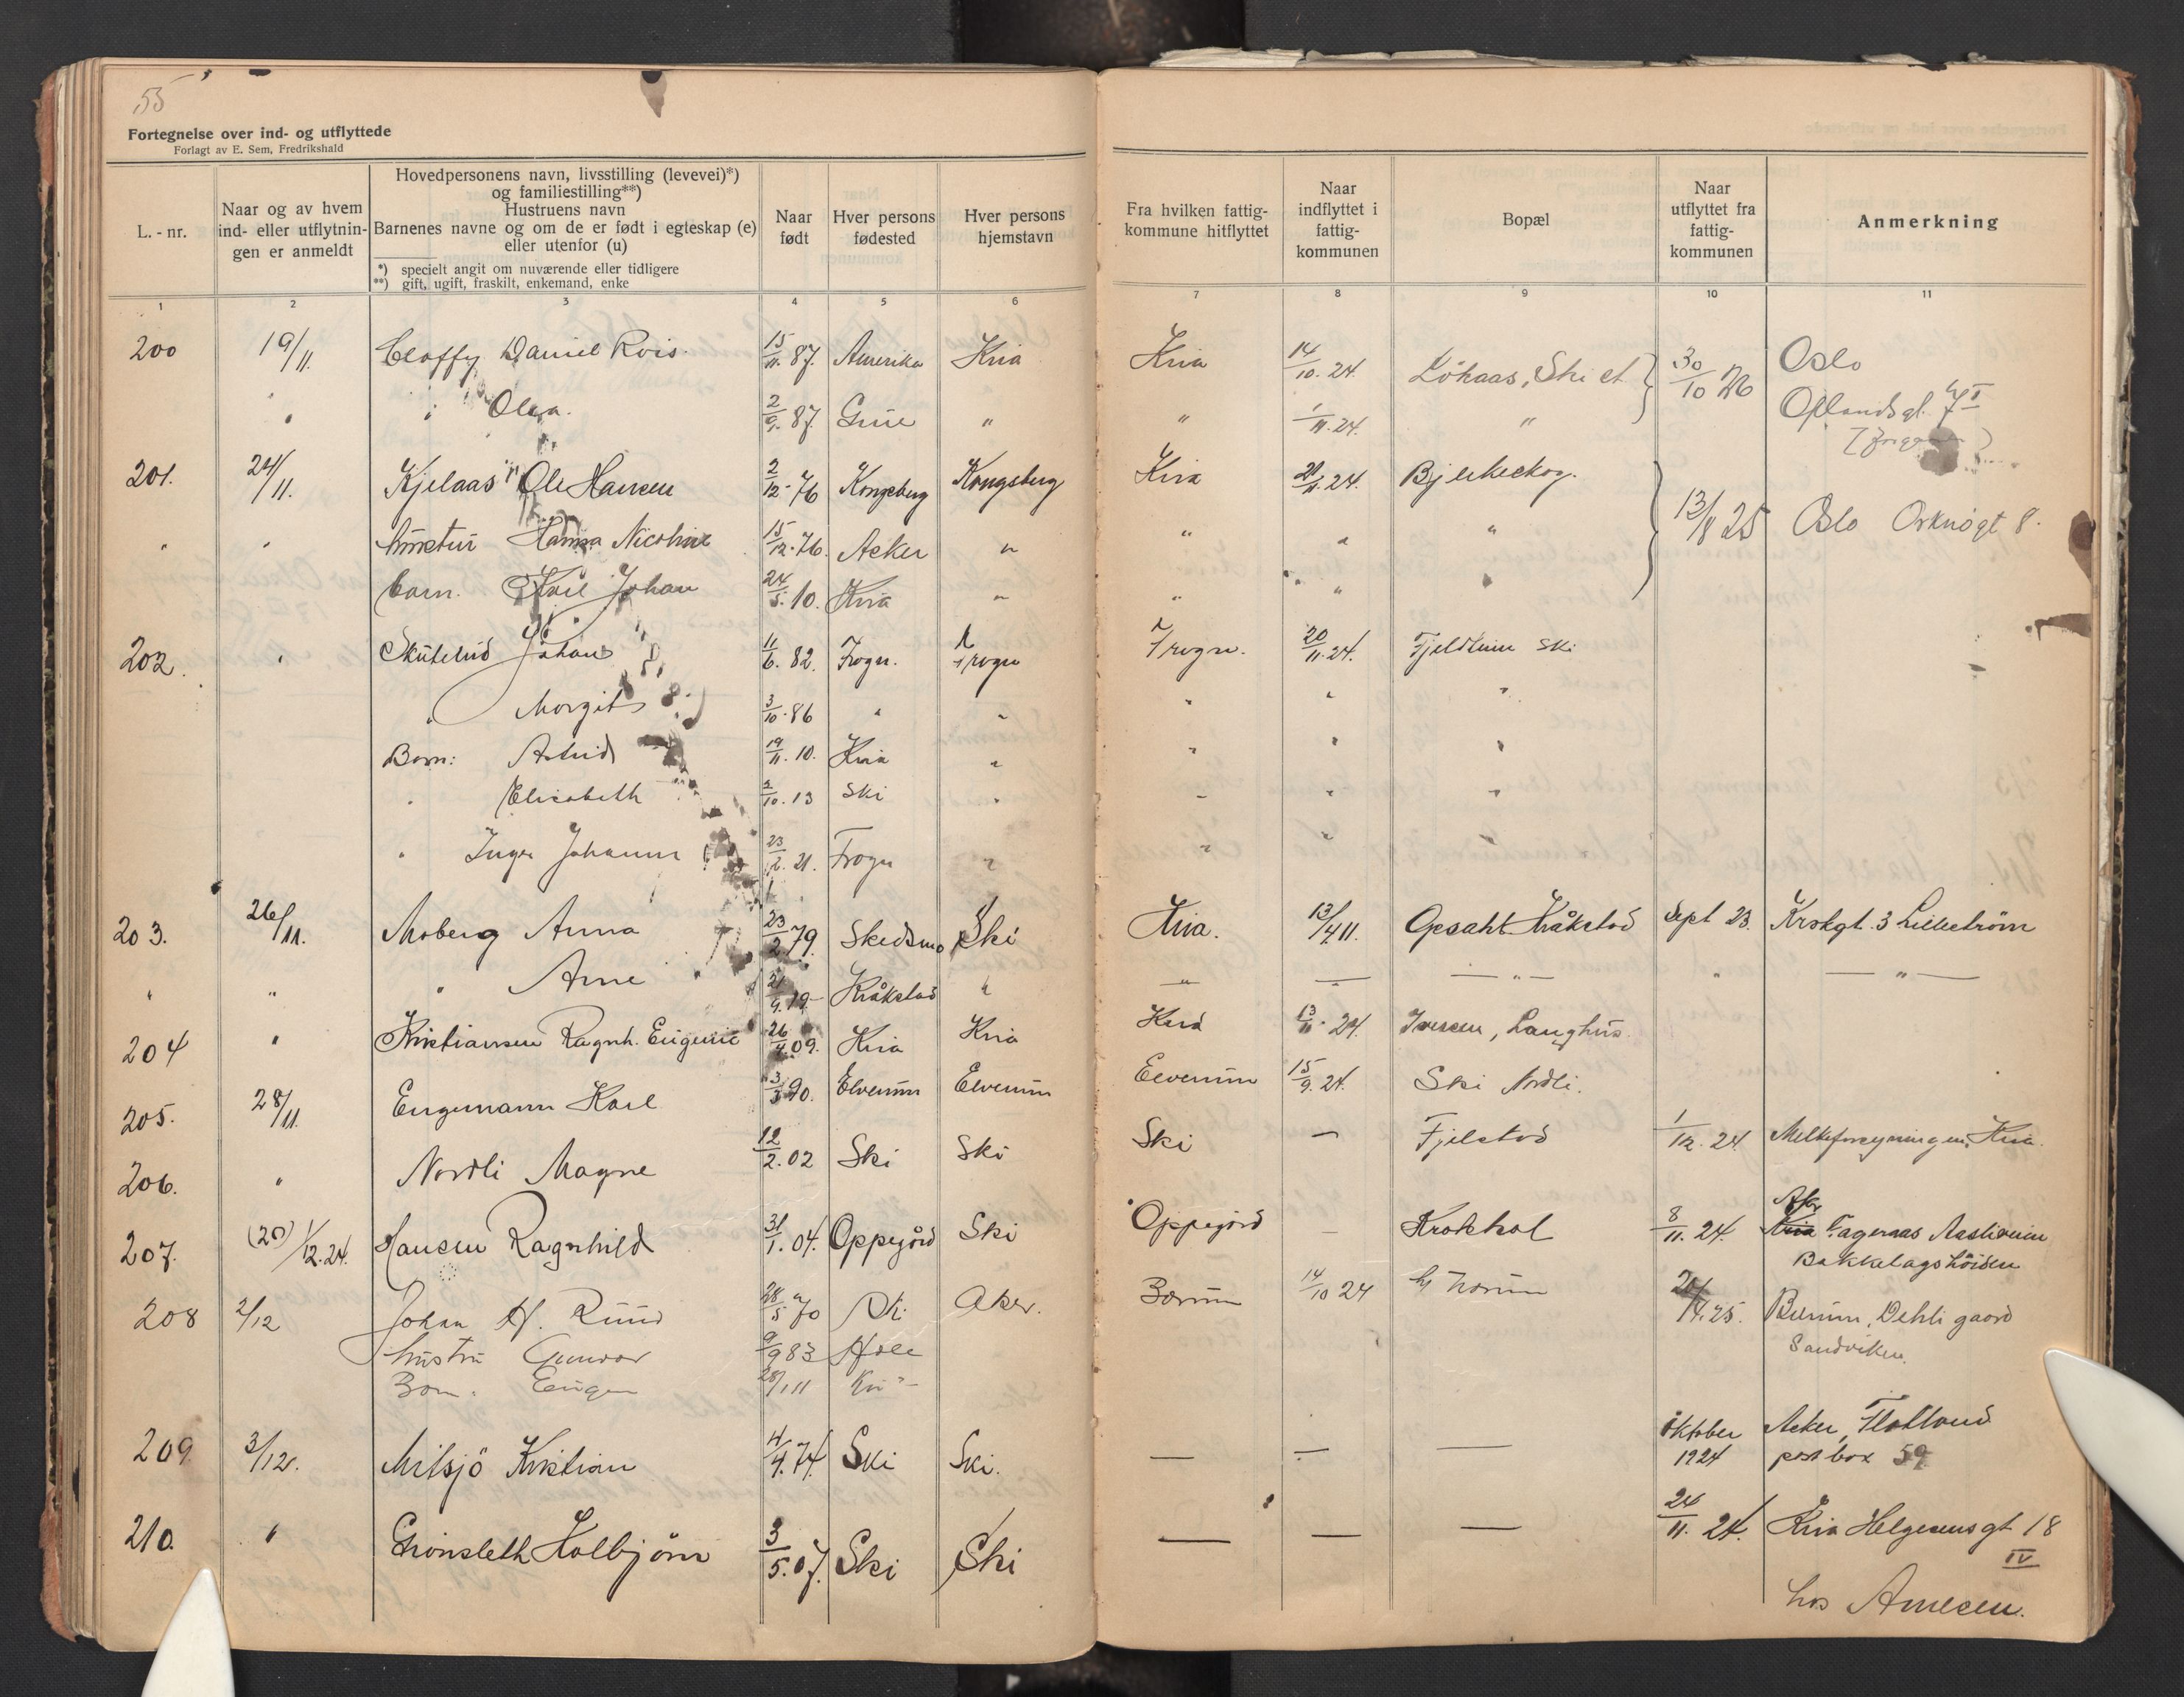 55
Fortegnelse over ind- og utflyttede
Forlagt av E. Sem, Fredrikshald
L. - nr.
Naar og av hvem
ind- eller utflytnin-
gen er anmeldt
Hovedpersonens navn, livsstilling (levevei)*)
og familiestilling**)
Hustruens navn
Barnenes navne og om de er født i egteskap (e)
eller utenfor (u)
*) specielt angit om nuværende eller tidligere
**) gift, ugift, fraskilt, enkemand, enke
Naar
født
Hver persons
fødested
Hver persons
hjemstavn
Fra hvilken fattig-
kommune hitflyttet
Naar
indflyttet i
fattig-
kommunen
Bopæl
Naar
utflyttet fra
fattig-
kommunen
Anmerkning
1 2 3 4 5 6 7 8 9 10 11
200 19/11. Claffy Daniel Rois. 15/11. 87. Amerika Kria Kria 14/10. 24. Löhaas, Ski st 30/10 26 Oslo
" " Olga. 2/9. 87. Grue " " 1/11. 24. "
201. 24/11. Kjelaas Ole Hansen 2/12. 76 Kongsberg Kongsberg Kria 24. 13/8 25 Oslo Orknögt 8.
" " hustru Hanna Nicoline 15/12. 76. Acker " " " "
barn. Karl Johan 24/5. 10. Kria " " " "
202. " Skutelud Johan 11/6. 82. Frogn. Frogn Frogn. 20/11. 24. Fjeldheim Ski
" Margit 3/10. 86 " " " " "
Barn: Astrid 19/11. 10. Kria " " " "
" Elisabeth 2/10. 13 Ski " " " "
" Inger Johanne 23/2. 21. Frogn " " "
203. 26/11. Moberg Anna 23/2 79. Skedsmo Ski Kria. 13/4 11. Opsahl Kråkstad Sept 23. Krskgt. 3 Lilleström
" " " Arne 21/9. 19 Kråkstad " — " — — — " — " — " —
204 " Kristiansen Ragnh. Eugenie 26/4. 09. Kria Kria Kria 13/11. 24. Iversen, Langhus.
205. 28/11. Engemann Karl 3/3 90. Elverum Elverum Elverum 15/9. 24. Ski Nordli.
206. " Nordli Magne 12/2. 02 Ski Ski Ski — Fjelstad 1/12. 24 Melkeforsyningen, Kria.
207. (20) 1/12. 24. Hansen Ragnhild 31/1. 04. Oppegård Ski Oppegård — Krokhol 8/11. 24. Kria Aker Fagernaas
Bekkelagshöiden
208 2/12 Johan H. Ruud 28/5 70 Ski Aker. Bærum 14/10 24 25. Bærum, Dehli gaard
Sandviken.
hustru Gunvor 9/9 83 Hole
Barn. Eugen 28/1 11 Kria
209 3/12. Mitsjö Kristian 4/4. 74. Ski Ski. — — — Oktober
1924 Aker, Flatland
postbox 59
210. " Grönsleth Kolbjörn 3/5. 07. Ski Ski — — — 24/11. 24. Kria Helgesensgt 18
IV
hos Arnesen.